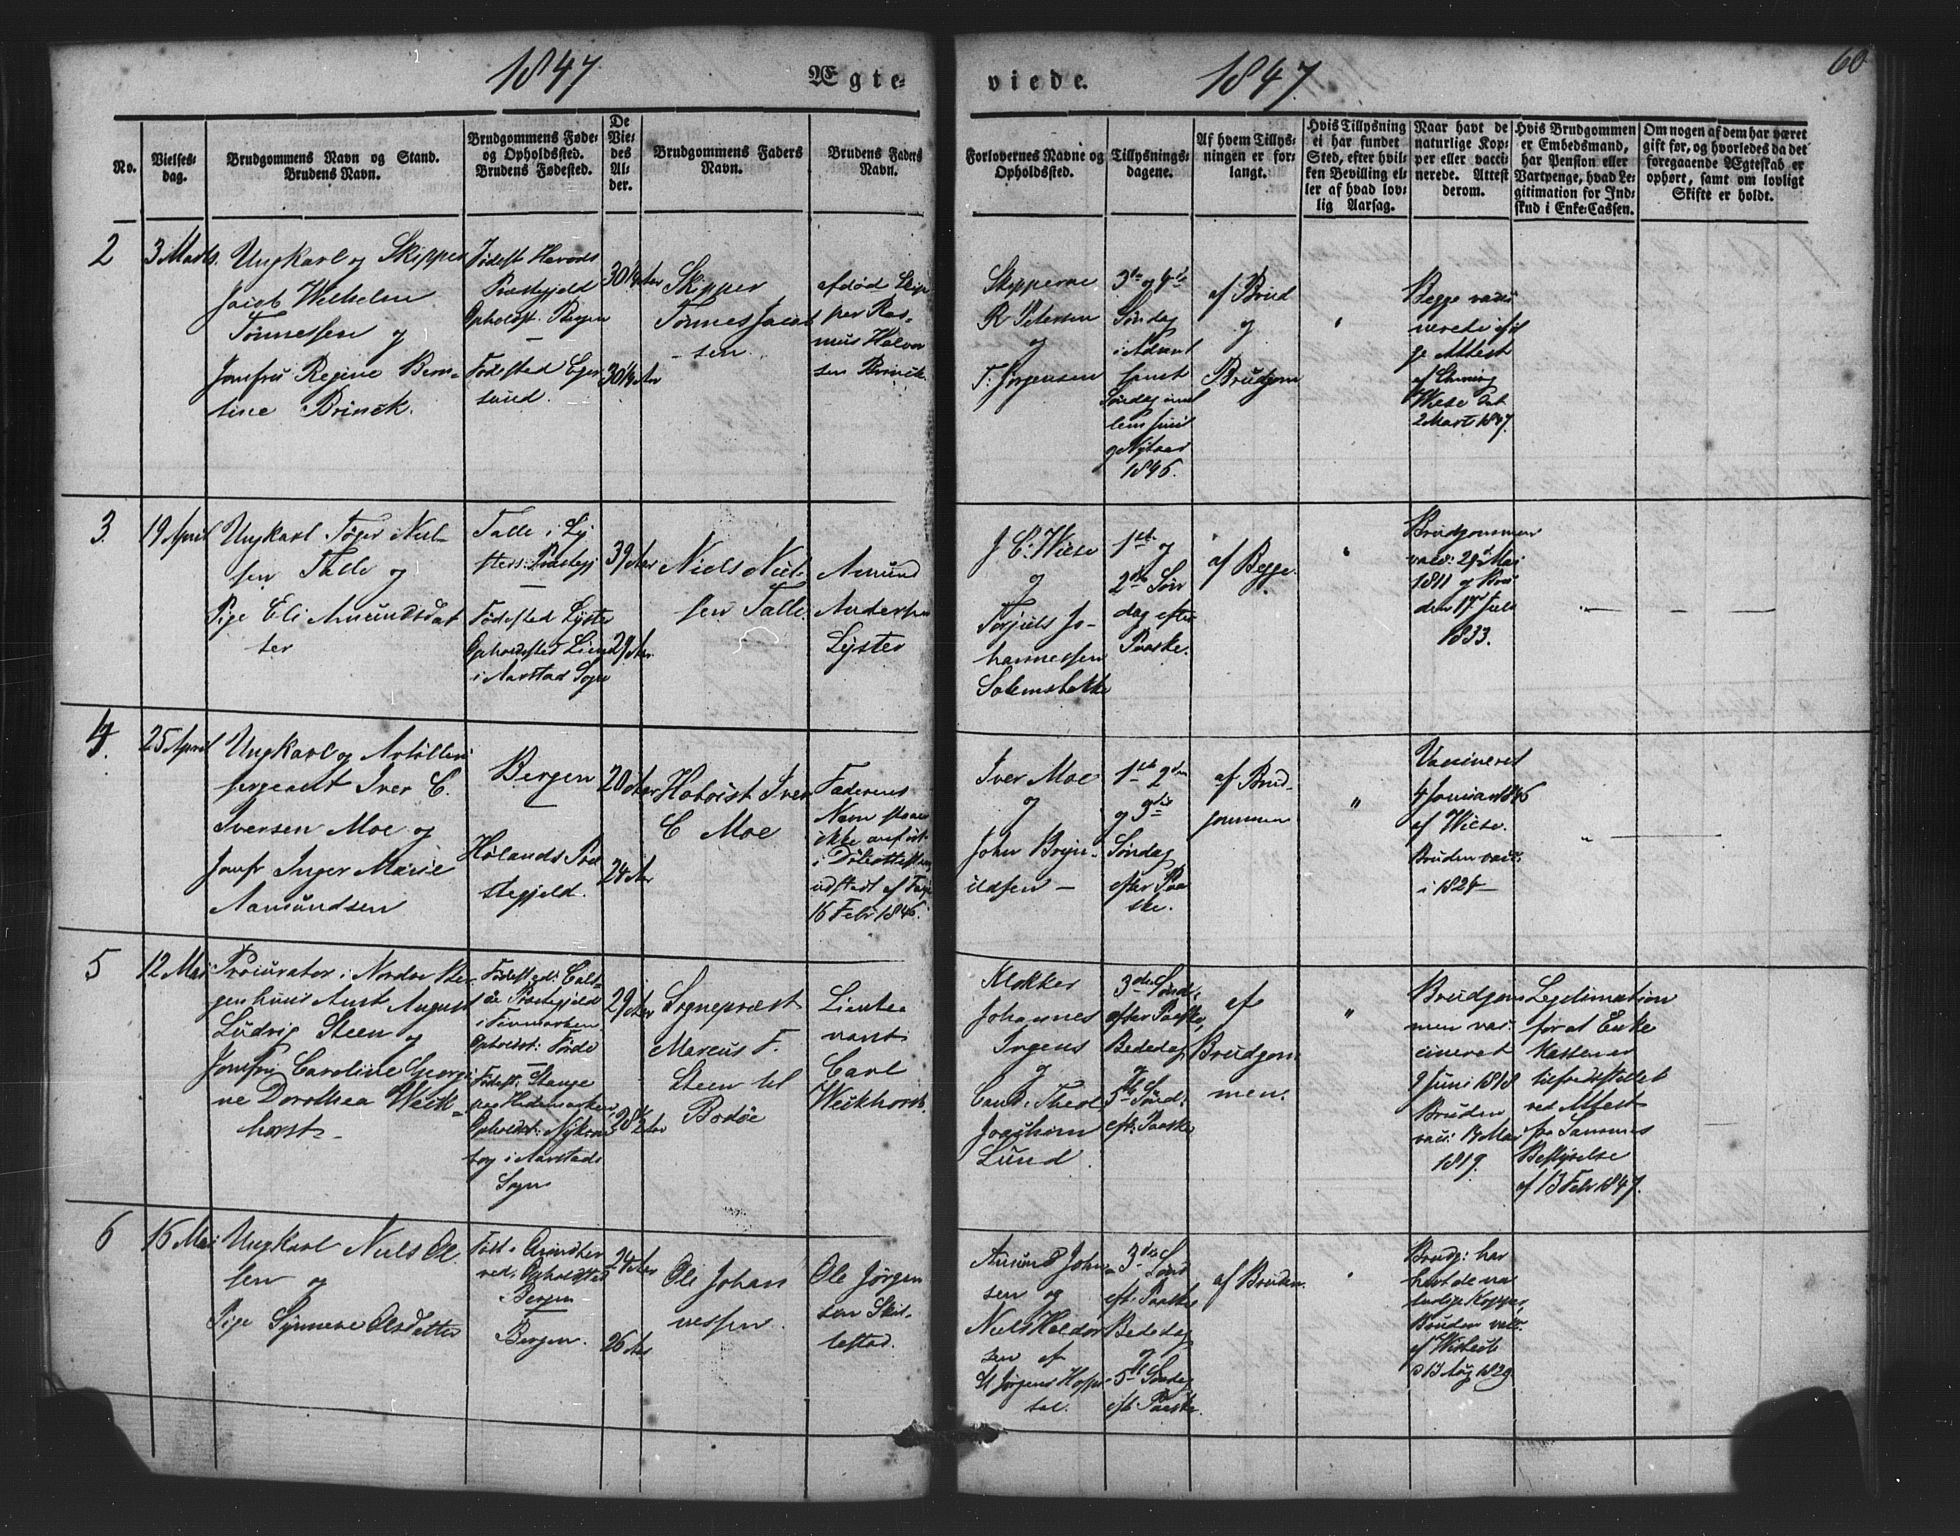 1847 Ægte-
viede. 1847. 60
No.
Vielses-
dag.
Brudgommens Navn og Stand.
Brudens Navn.
Brudgommens Føde-
og Opholdssted.
Brudens Fødested.
De
Vie-
des
Al-
der.
Brudgommens Faders
Navn.
Brudens Faders
Navn.
Forlovernes Navne og
Opholdssted.
Tillysnings-
dagene.
Af hvem Tillys-
ningen er for-
langt.
Hvis Tillysning
ei har fundet
Sted, efter hvil-
ken Bevilling el-
ler af hvad lov-
lig Aarsag.
Naar havt de
naturlige Kop-
per eller vacci-
nerede. Attest
derom.
Hvis Brudgommen
er Embedsmand,
har Pension eller
Vartpenge, hvad Le-
gitimation for Ind-
skud i Enke-Cassen.
Om nogen af dem har været
gift før, og hvorledes da det
foregaaende Ægteskab er
ophørt, samt om lovligt
Skifte er holdt.
2
3 Marts.
Ungkarl og Skipper
Jacob Wilhelm
Tønnessen og
Jomfru Regine Bern-
tine Brinck.
Fødest. Herøds
Præstegjeld
Opholdst. Bergen
Fødested Eger-
sund.
30 1/4 Aar
30 1/2 Aar
Skipper
Tønnes Jacob
-sen.
afdød Skip
per Ras-
mus Halvor
sen Brinck.
Skipperne
R Petersen
og
T: Jørgensen
3die og 4de
Søndag
i Advent
samt
Søndag mel
lem Juul
og Nytaar
1846.
af Brud
og
Brudgom
Begge vacci
nerede iføl
ge Attest
af Chirurg
Wiese dat
2 Marts 1847.
3.
19 April
Ungkarl Tøger Niel-
sen Talle og
Pige Eli Amundsdat
ter
Talle i Ly
sters Præstegj
Fødested Lyster
Opholdssted Lien
i Aarstad Sogn
39 Aar
29 Aar
Niels Niel-
sen Talle.
Amund
Andersen
Lyster
J C: Wiese
og
Torjuls Jo-
hannessen
Solemsbakke
1ste og
2den Søn
dag efter
Paaske.
af Begge.
Brudgommen
vacc: 29d Mai
1811 og Bru
den 17 Juli
1833.
4.
25 April
Ungkarl og Artilleri
sergeant Iver C.
Iversen Moe og
Jomfr Inger Marie
Aamundsen
Bergen
Hølands Præ
stegjeld.
20 Aar
24 Aar
Hoboist Iver
C Moe
Faderens
Navn staaer
ikke anført
i Døbeattesten
udstedt af
16 Febr 1846.
Iver Moe
og
John Bryn-
ildsen -
1ste 2den
og 3die
Søndag
efter Paa
ske.
af Brud-
gommen
Vaccineret
4 Januar 1846
af Wiese.
Bruden vacc:
i 1824 -
5
12 Mai
Procurator i Nordre Ber-
genhuus Amt August
Ludvig Steen og
Jomfru Caroline Georgi
ne Dorothea Weick-
horst -
Fødested:
Præstegjeld
i Finmarken
Opholdst: Førde
Fødest: Stange
paa Hedemarken
Opholdst: Nykron
borg i Aarstads
Sogn
29 Aar
28 1/2 Aar
Sognepræst
Marcus F.
Steen til
Bodøe
Lieute-
nant
Carl
Weickhorst.
Klokker
Johannes
Irgens
og
Cand: Theol
Joachim
Lund.
3die Sønd:
efter Paaske,
Bededag
og
5te Sønd:
eft: Paaske
af
Brudgom-
men.
Brudgom-
men vac-
cineret
9 Juni 1818
Bruden
vacc: 13 Mai
1819.
Legitimation
for at Enke
kassen er
tilfredsstillet
ved Attest
fra Sammes
Bestyrelse
af 13 Febr 1847.
6
16 Mai
Ungkarl Niels Ol
sen og
Pige Synneve Olsdatter
Født i Qvindher
red, Opholdsted
Bergen
Bergen.
24 Aar
26 Aar
Ole Johan
nessen.
Ole Jørgen
sen Skil-
bestad.
Amund John
sen og
Niels Haldor
sen af
St Jørgens Hospi
tal.
3die Sønd
eft: Paaske
Bededag
og
5te Søndag
eft: Paaske.
af Bruden.
Brudg: har
havt de na
turlige Kopper,
Bruden vacc:
af
d 13 Aug 1829.